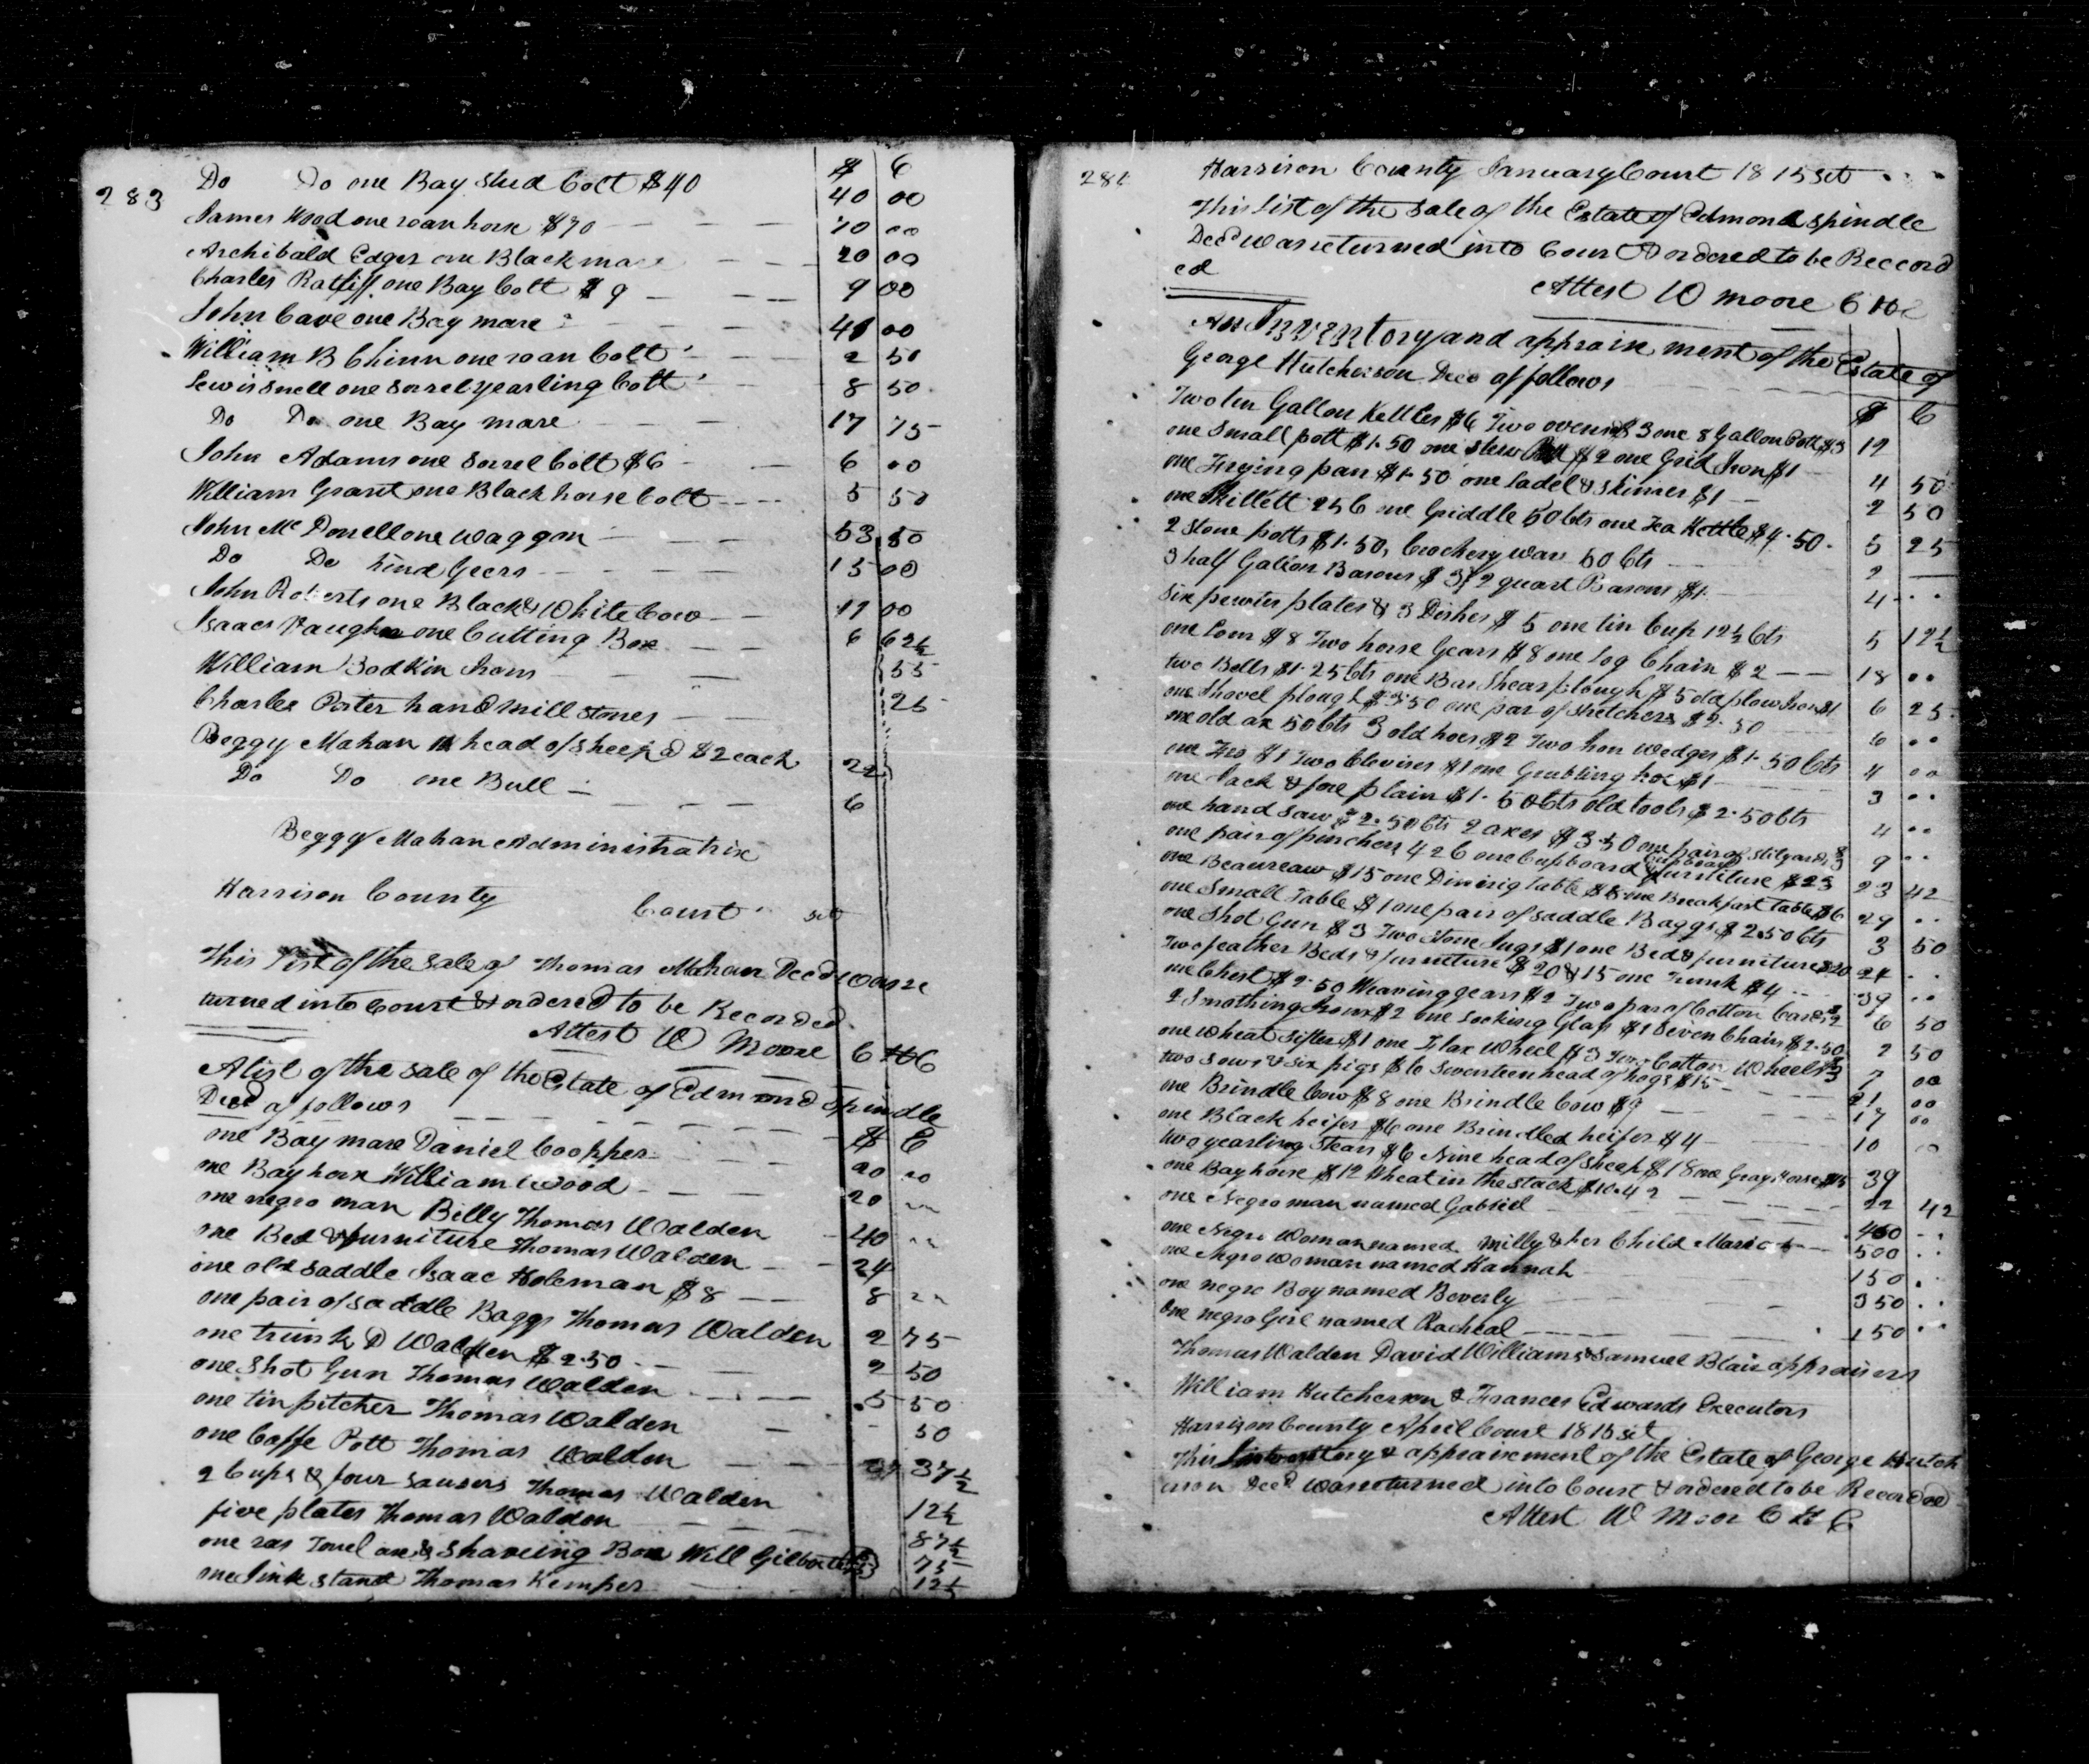 283
$ C
Do Do one Bay stud Colt $40 40 00
James Wood one roan horse $70 70 00
Archibald Edger one Black mare 20 00
Charles Ratliff one Bay Colt $9 9 00
John Cave one Bay mare 41 00
William B Chinn one roan Colt 2 50
Lewis Snell one Sorrel yearling Colt 8 50
Do Do one Bay mare 17 75
John Adams one Sorrel Colt $6 6 00
William Grant one Black horse Colt 5 50
John Mc Donell one waggon 53 50
Do Do hind Geers 15 00
John Roberts one Black & White Cow 11 00
Isaac Vaughn one Cutting Box 6 62½
William Bodkin Irons 55
Charles Porter hand mill stones 25
Peggy Mahan 11 head of sheep @ $2 each 22
Do Do one Bull 6
Peggy Mahan Administratrix
Harrison County Court sct
This List of the sale of Thomas Mahan Decd was re
turned into Court & ordered to be Recorded
Attest W Moore C H C
A list of the sale of the Estate of Edmond Spindle
Decd as follows $ C
one Bay mare Daniel Coopper 20 00
one Bay horse William Wood 20
one negro man Billy Thomas Walden 40
one Bed & furniture Thomas Walden 24
one old Saddle Isaac Holeman $8 8
one pair of saddle Baggs Thomas Walden 2 75
one trunk D Walden $2.50 2 50
one Shot Gun Thomas Walden 5 50
one tin pitcher Thomas Walden 50
one Coffe Pott Thomas Walden 37½
2 Cups & four Sausers Thomas Walden 12½
five plates Thomas Walden 87½
one Towel & Shaveing Box Will 75
one Sink stand Thomas Kemper 12½
284
Harrison County January Court 1815 sct
This List of the sale of the Estate of Edmond Spindle
Decd was returned into Court & ordered to be Reccord
ed
Attest W Moore C H C
An Inventory and appraisement of the Estate of
George Hutcherson Decd as follows $ C
Two ten Gallon Kettles $6 Two ovens $3 one 8 Gallon Pott $3 12
one Small pott $1.50 one stew Pott $2 one Grid Iron $1 4 50
one Frying pan $1.50 one Ladel & Skimer $1 2 50
one Skillett 25 C one Griddle 50 Cts one Tea Kettle $4.50 5 25
2 Stone potts $1.50, Crockery ware 50 Cts 2
3 half Galion Basons $3, 2 quart Basons $1 4
Six pewter plates & 3 Dishes $5 one tin Cup 12½ Cts 5 12½
one Lom $8 Two horse Gears $8 one Log Chain $2 18
two Bells $1.25 Cts one Bar Shear plough $5 old plow Irons $1 6 25
one Shovel plough $3.50 one par of Stretchers $2.50 6
one old ax 50 Cts 3 old hoes $2 Two Iron wedges $1.50 Cts 4
one Fro $1 Two Clevises $1 one Grubling hoe $1 3
one Jack & fore plain $1.50 Cts old tools $2.50 Cts 4
one hand saw $2.50 Cts 2 axes $3.50 one pair of Stilyards $3 9
one pair of pinchers 42 C one Cupboard & Cupboard furniture $23 23 42
one Beaureaw $15 one Dining table $8 one Breakfast table $6 29
one Small Table $1 one pair of saddle Baggs $2.50 Cts 3 50
one Shot Gun $3 Two Stone Jugs $1 one Bed & furniture $20 24
Two feather Beds & furniture $20 & 15 one Trunk $4 39
one Chest $2.50 Weaving gears $2 Two par of Cotton Cards $2 6 50
2 Smothing Irons $2 one Looking Glass $1 Seven Chairs $2.50 2 50
one wheat Sifter $1 one Flax Wheel $3 Two Cotton Wheels $3 7 00
two Sows & six pigs $6 Seventeen head of hogs $15 21 00
one Brindle Cow $8 one Brindle Cow $9 17 00
one Black heifer $6 one Brindled heifer $4 10
two yearling Stears $6 Nine head of Sheep $18 one Gray Horse $15 39
one Bay horse $12 Wheat in the stack $10.42 22 42
one Negro man named Gabriel 400
one Negro Woman named Milly & her Child Maria 500
one Negro woman named Hannah 150
one negro Boy named Beverly 350
one negro Girl named Racheal 150
Thomas Walden David Williams & Samuel Blair appraisers
William Hutcherson & Frances Edwards Executors
Harrison County April Court 1815 sct
This Inventory & appraisement of the Estate of George Hutch
erson Decd was returned into Court & ordered to be Recorded
Attest W Moor C H C